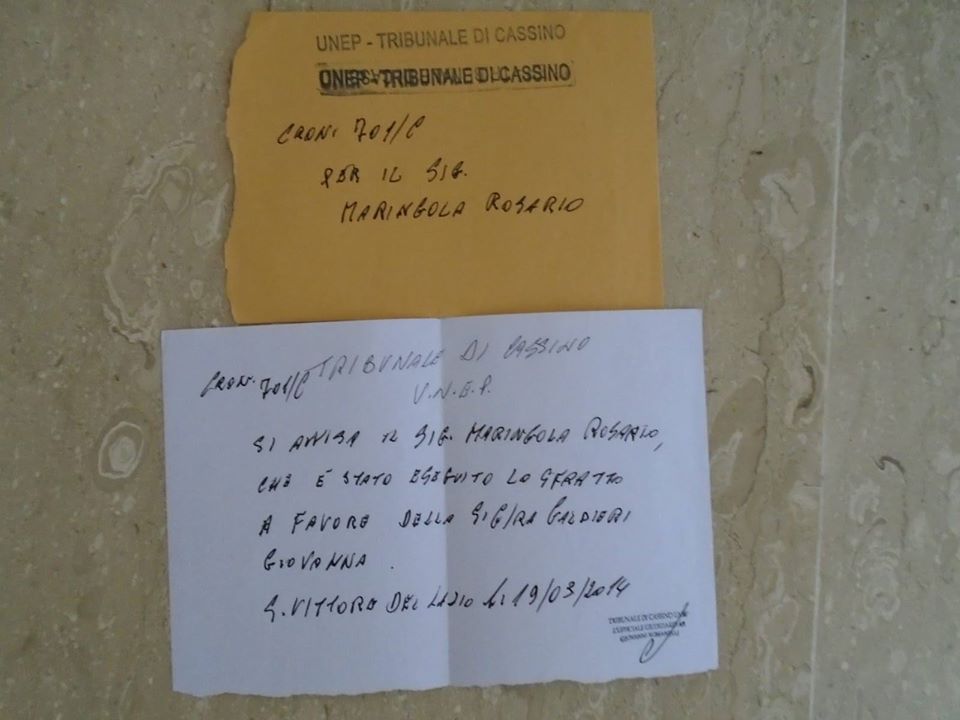 UNEP - TRIBUNALE DI CASSINO
UNEP - TRIBUNALE DI CASSINO
CRON. 701/C
PER IL SIG.
MARINGOLA ROSARIO
TRIBUNALE DI CASSINO
CRON. 701/C
U.N.E.P.
SI AVVISA IL SIG. MARINGOLA ROSARIO,
CHE È STATO ESEGUITO LO SFRATTO
A FAVORE DELLA SIG/RA GALDIERI
GIOVANNA.
S. VITTORE DEL LAZIO lì 19/03/2014
TRIBUNALE DI CASSINO
L'UFFICIALE GIUDIZIARIO
GIOVANNI